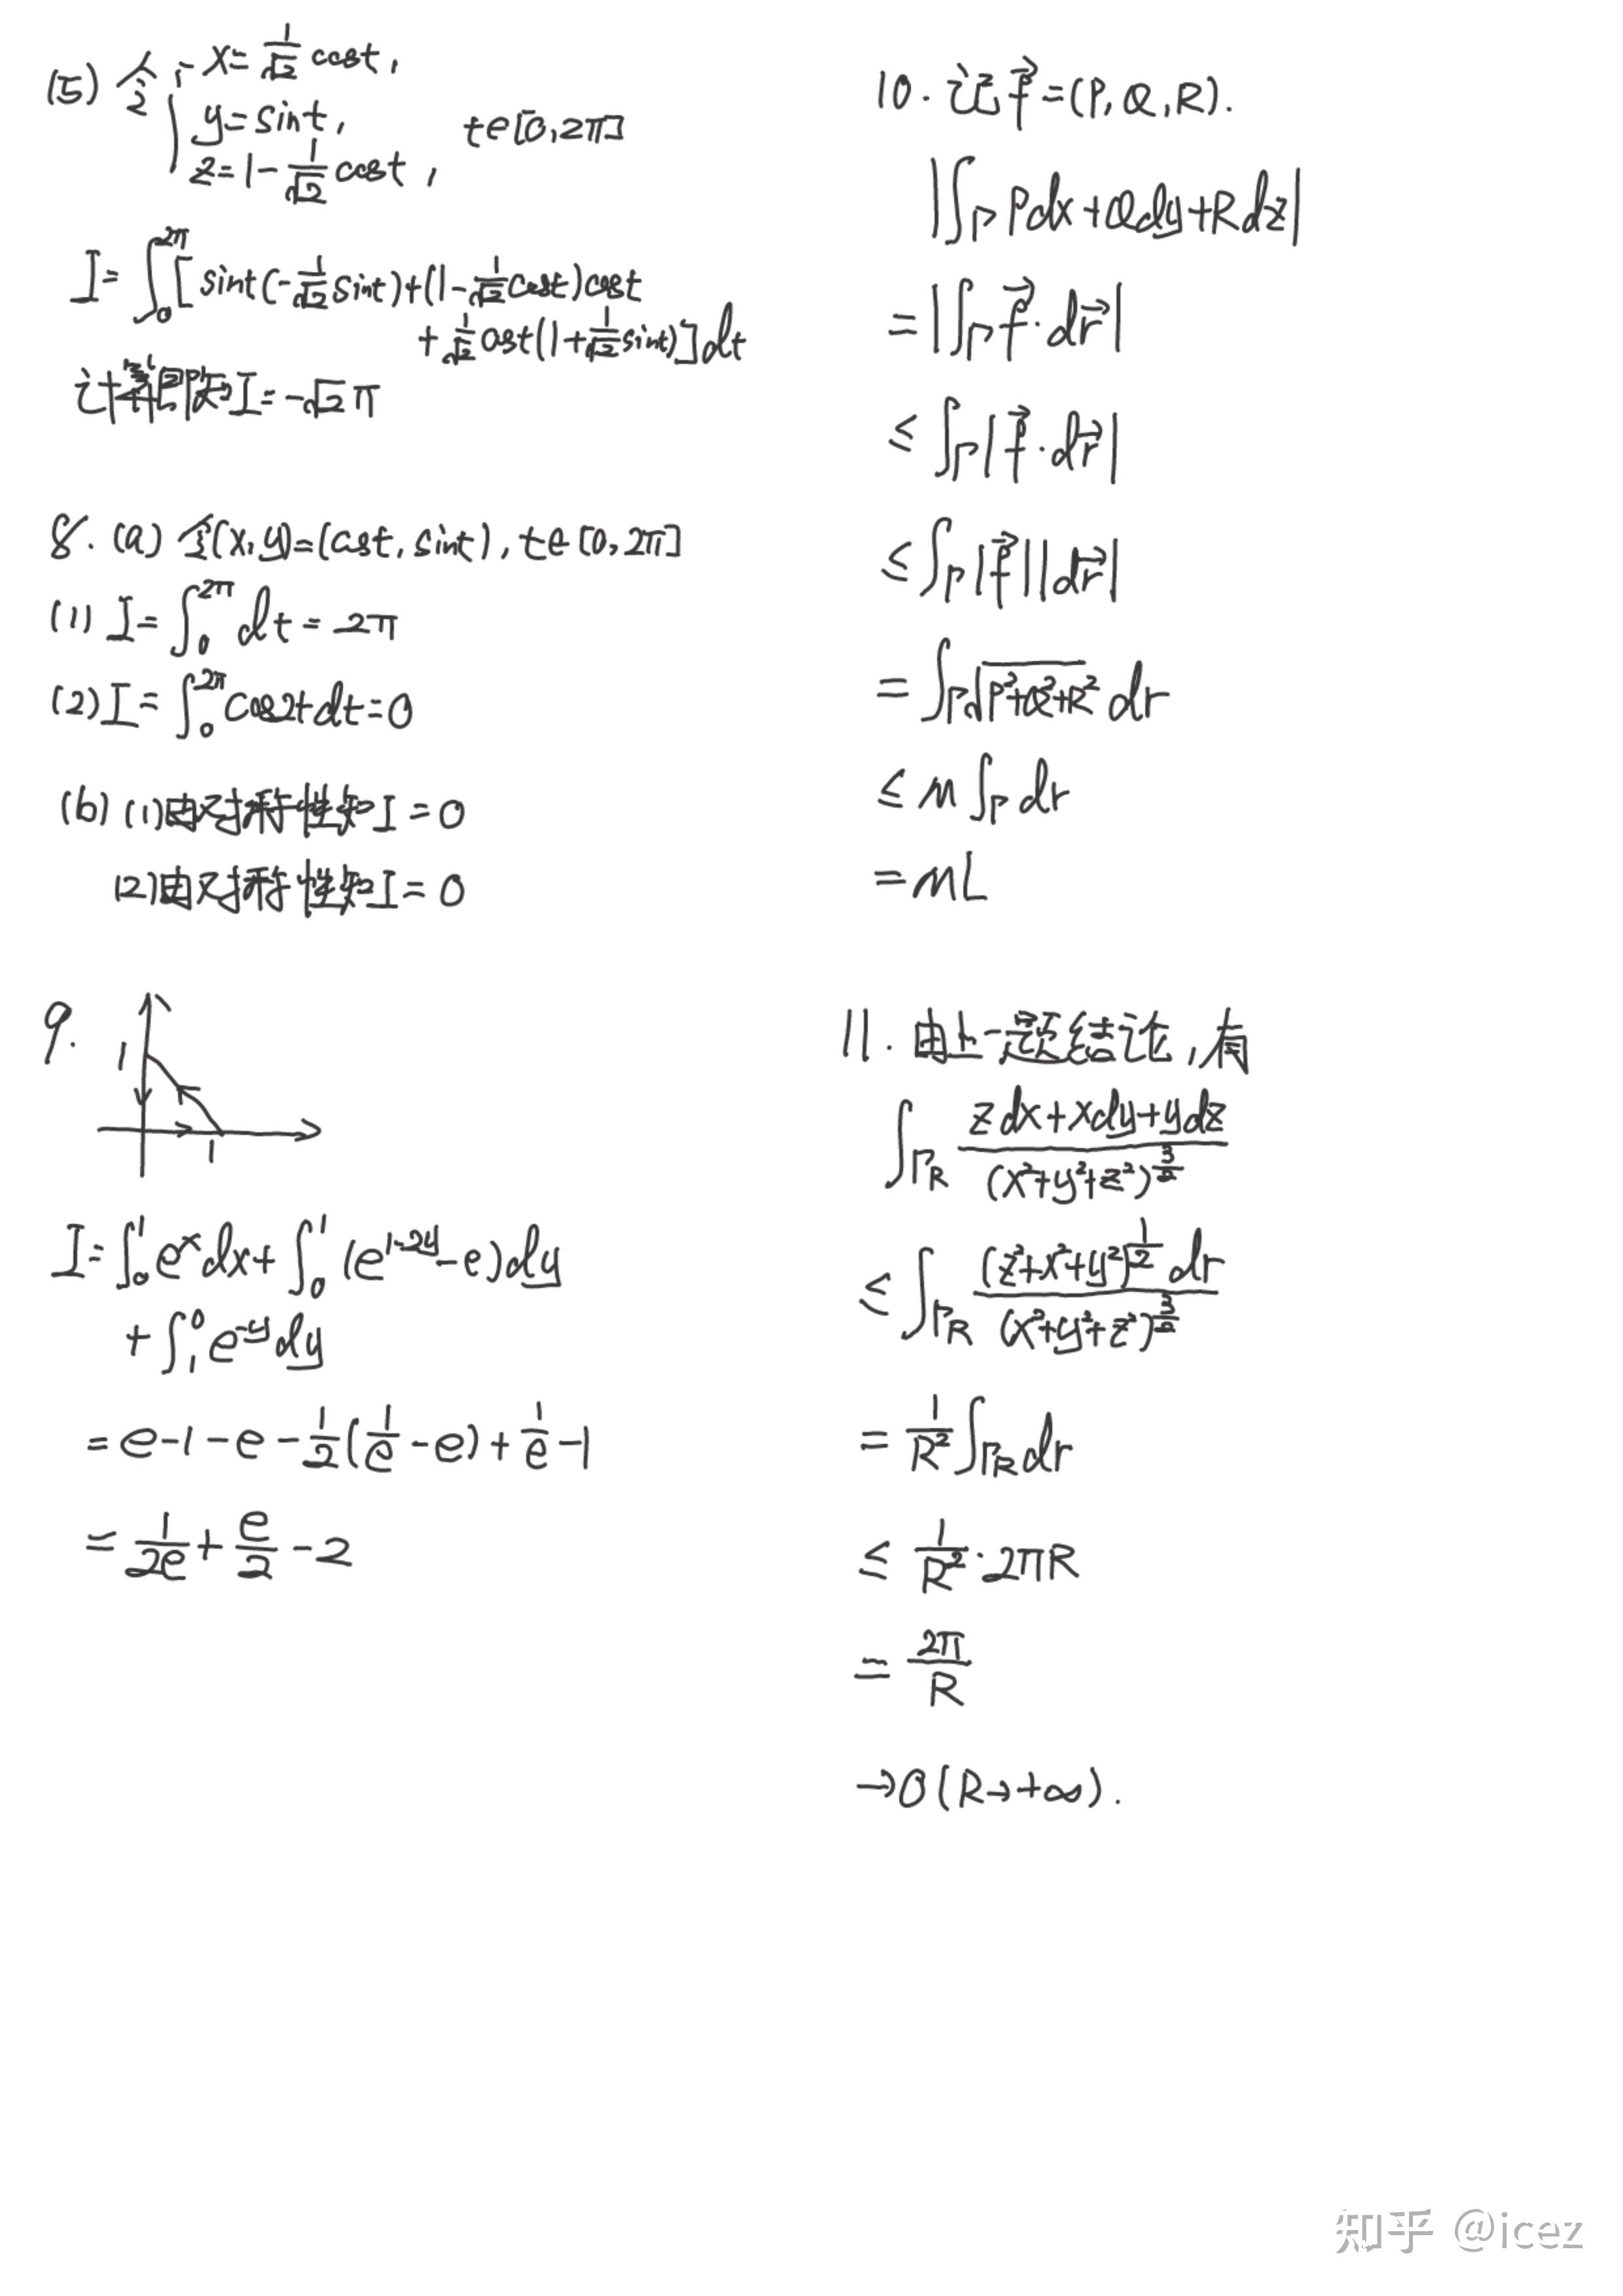 (5) 令 { x = \frac{1}{\sqrt{2}} cos t,
y = sin t, t ∈ [0, 2π]
z = 1 - \frac{1}{\sqrt{2}} cos t,
I = ∫_0^{2π} [ sin t (-\frac{1}{\sqrt{2}} sin t) + (1 - \frac{1}{\sqrt{2}} cos t) cos t
+ \frac{1}{\sqrt{2}} cos t (1 + \frac{1}{\sqrt{2}} sin t) ] dt
计算即知 I = -\sqrt{2} π
8. (a) 令 (x, y) = (cos t, sin t), t ∈ [0, 2π]
(1) I = ∫_0^{2π} dt = 2π
(2) I = ∫_0^{2π} cos 2t dt = 0
(b) (1) 由对称性知 I = 0
(2) 由对称性知 I = 0
9.
1
1
I = ∫_0^1 e^x dx + ∫_0^1 (e^{1-2y} - e) dy
+ ∫_1^0 e^{-y} dy
= e - 1 - e - \frac{1}{2} (\frac{1}{e} - e) + \frac{1}{e} - 1
= \frac{1}{2e} + \frac{e}{2} - 2
10. 记 \vec{f} = (P, Q, R).
| ∫_Γ P dx + Q dy + R dz |
= | ∫_Γ \vec{f} · d\vec{r} |
≤ ∫_Γ | \vec{f} · d\vec{r} |
≤ ∫_Γ | \vec{f} | | d\vec{r} |
= ∫_Γ \sqrt{P^2 + Q^2 + R^2} dr
≤ M ∫_Γ dr
= ML
11. 由上一题结论, 有
∫_{Γ_R} \frac{z dx + x dy + y dz}{(x^2 + y^2 + z^2)^{\frac{3}{2}}}
≤ ∫_{Γ_R} \frac{(z^2 + x^2 + y^2)^{\frac{1}{2}} dr}{(x^2 + y^2 + z^2)^{\frac{3}{2}}}
= \frac{1}{R^2} ∫_{Γ_R} dr
≤ \frac{1}{R^2} · 2πR
= \frac{2π}{R}
→ 0 (R → +∞).
知乎 @icez